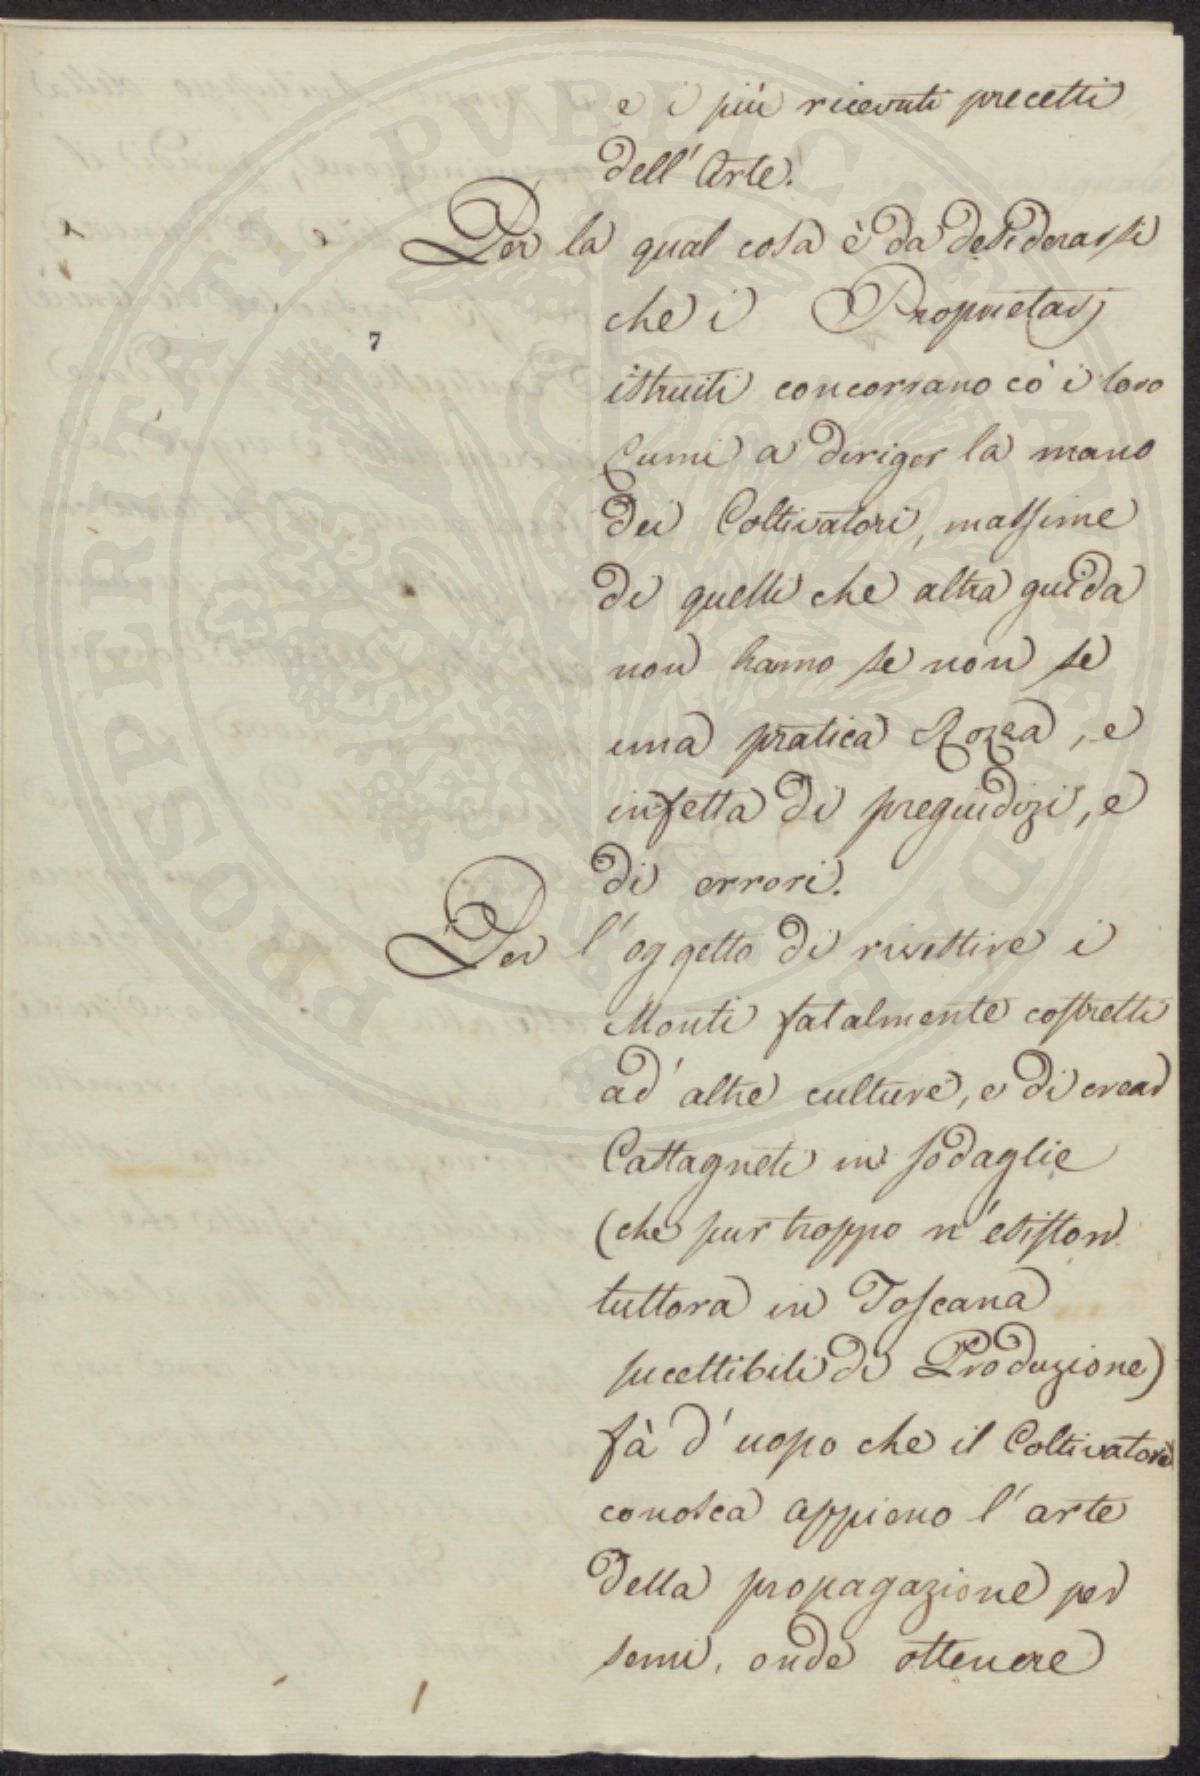 e i più ricevuti precetti
dell' Arte.
Per la qual cosa è da desiderarsi
che i Proprietarj
istruiti concorrano co' i loro
Lumi a diriger la mano
dei Coltivatori, massime
di quelli che altra guida
non hanno se non se
una pratica Rozza, e
infetta di pregiudizi, e
di errori.
Per l'oggetto di rivestire i
Monti fatalmente costretti
ad' altre culture, e di crear
Castagneti in sodaglie
(che pur troppo n'esiston
tuttora in Toscana
sucettibili di Produzione)
fà d'uopo che il Coltivatore
conosca appieno l'arte
della propagazione per
semi, onde ottenere
7
PROSPERITATI PVBLICAE AVGENDAE